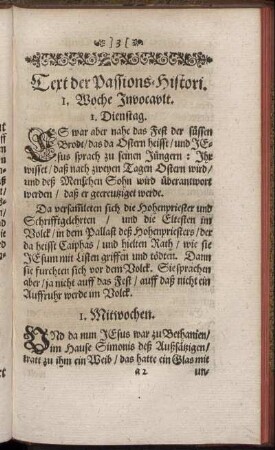 ] 3 [
Text der Passions-Histori.
1. Woche Invocavit.
1. Dienstag.
ES war aber nahe das Fest der süssen
Brodt/das da Ostern heisst/und JE-
sus sprach zu seinen Jüngern: Ihr
wisset/daß nach zweyen Tagen Ostern wird/
und deß Menschen Sohn wird überantwort
werden/daß er gecreutziget werde.
Da versam̃leten sich die Hohenpriester und
Schrifftgelehrten/und die Eltesten im
Volck/in dem Pallast deß Hohenpriesters/der
da heisst Caiphas/und hielten Rath/wie sie
JEsum mit Listen griffen und tödten. Dann
sie furchten sich vor dem Volck. Sie sprachen
aber/ja nicht auff das Fest/auff daß nicht ein
Auffruhr werde im Volck.
1. Mittwochen.
UNd da nun JEsus war zu Bethanien/
im Hause Simonis deß Außsätzigen/
tratt zu ihm ein Weib/das hatte ein Glas mit
a 2 un/